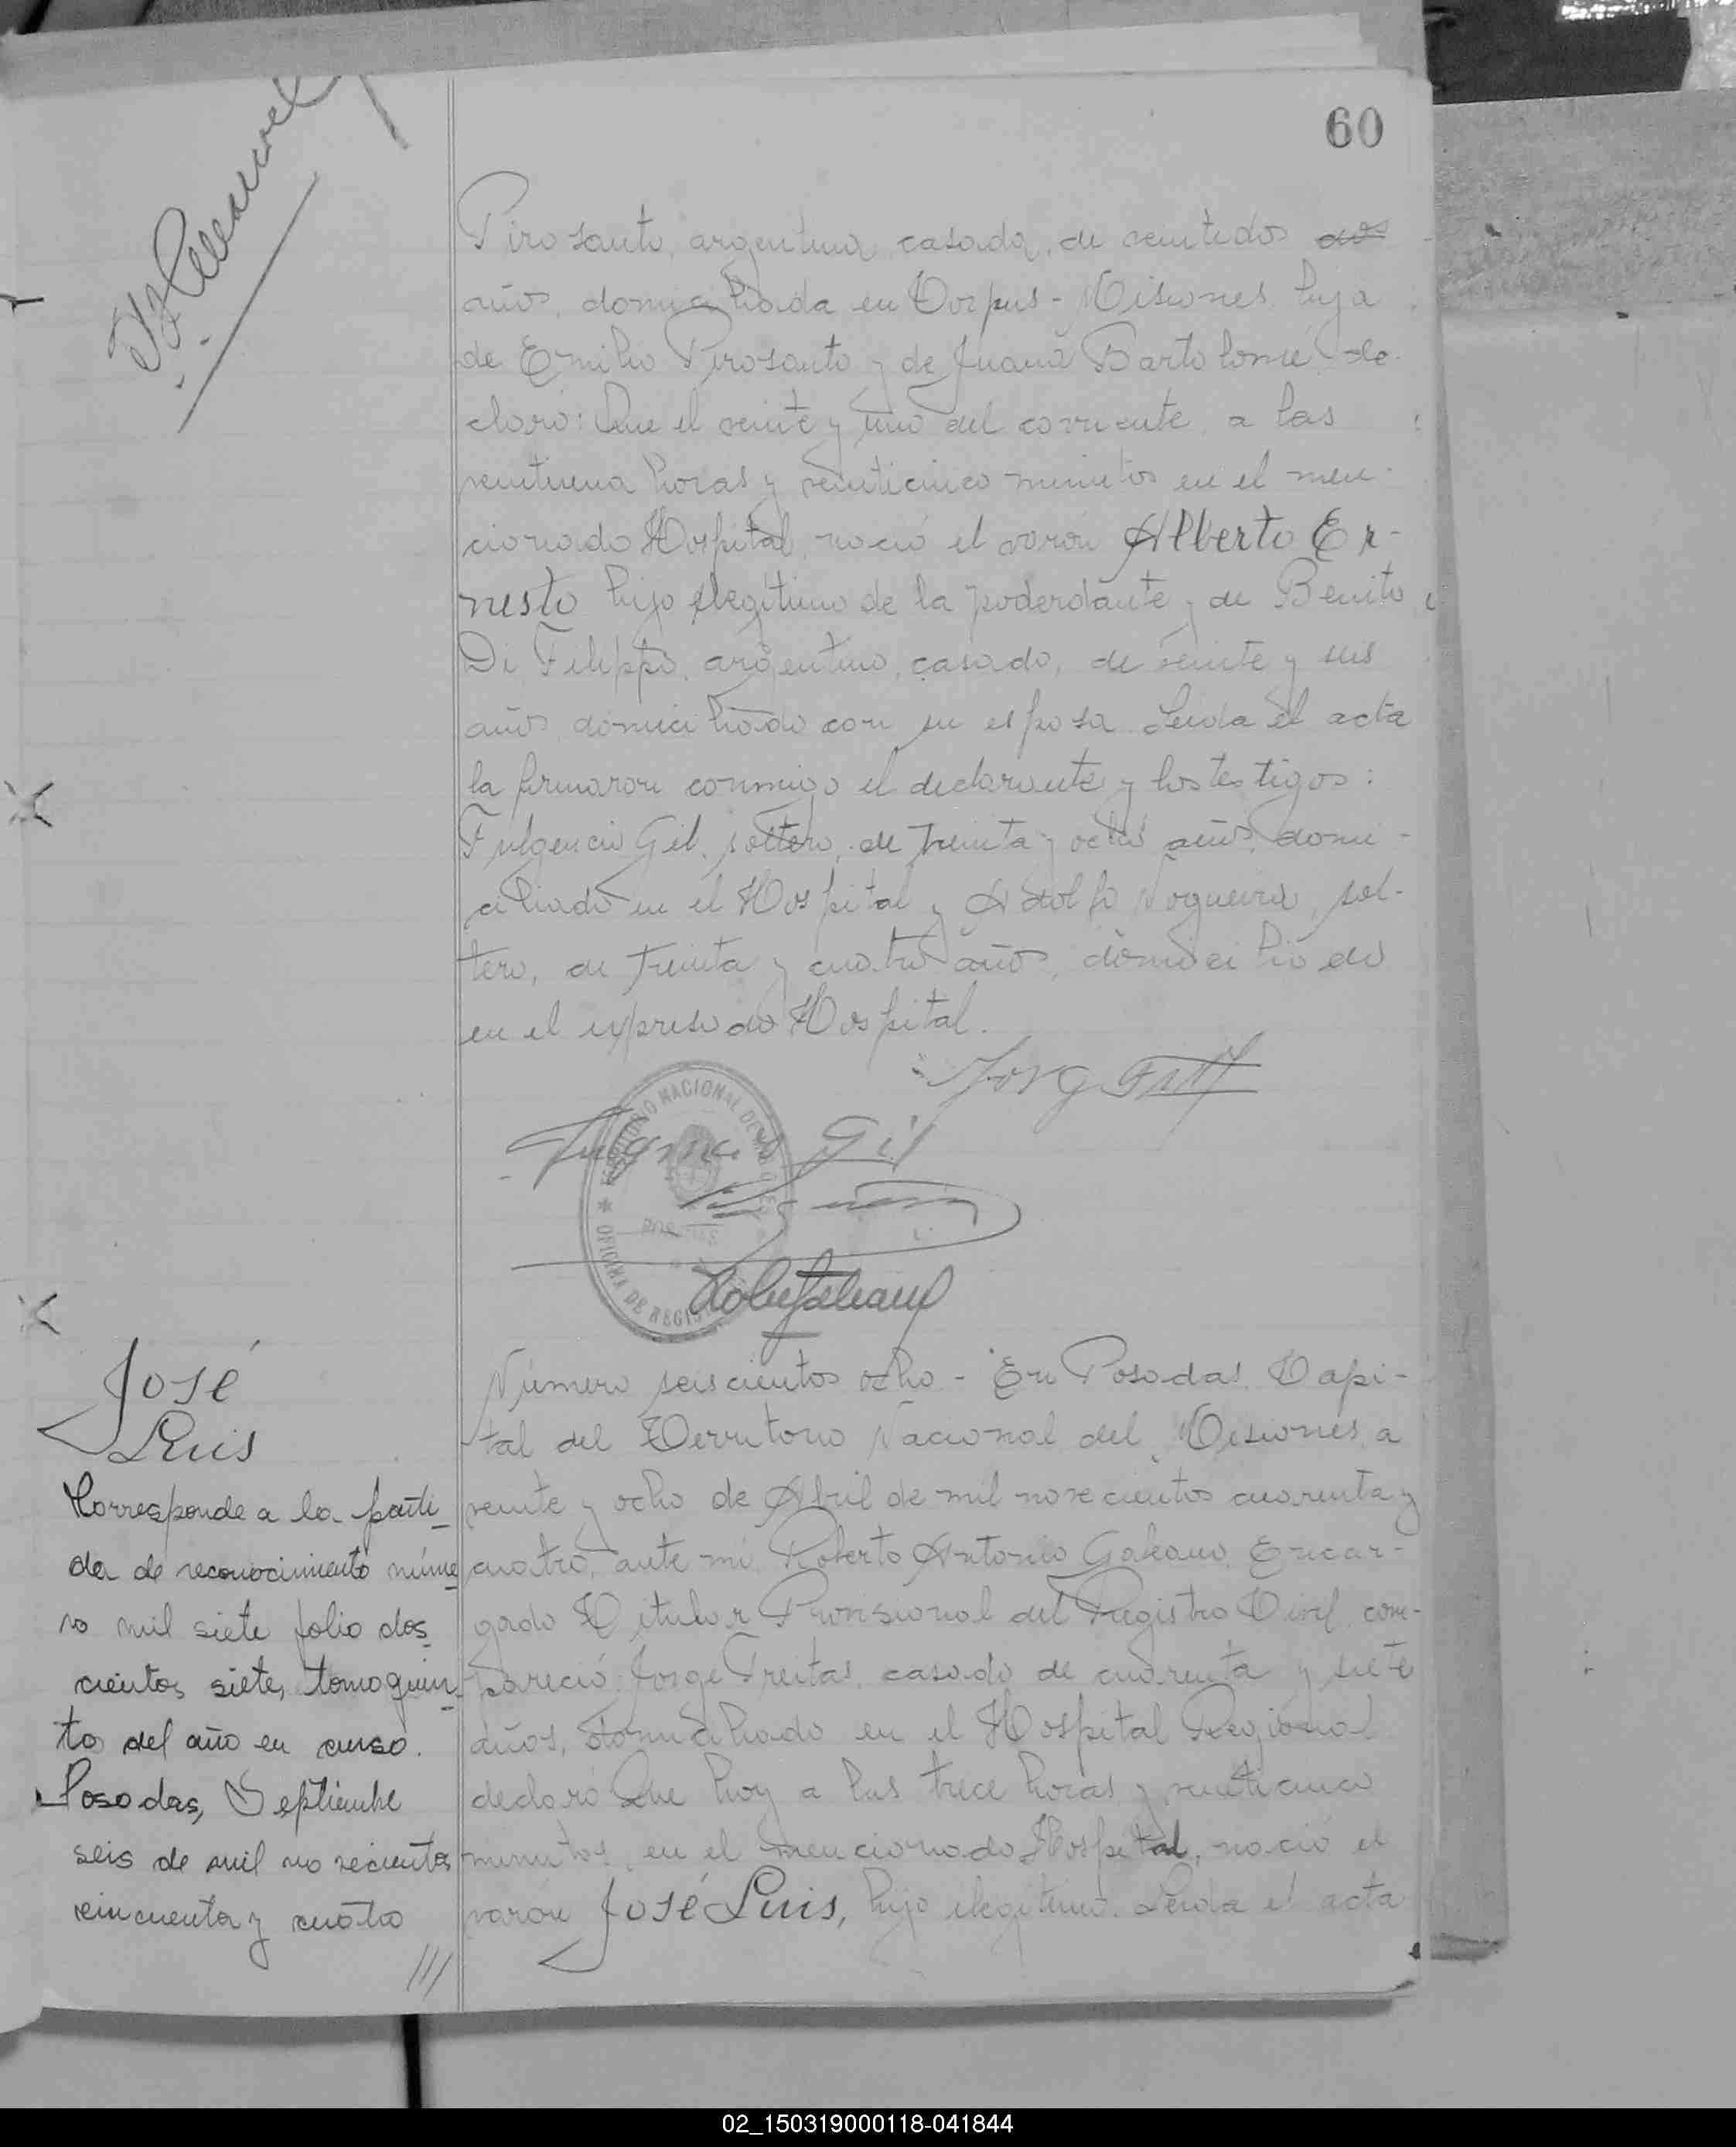 60
Pirosanto, argentina, casada, de ventidos dos
años, domiciliada en Corpus - Misiones, hija
de Emilio Pirosanto y de Juana Bartolomé, de-
claró: Que el veinte y uno del corriente, a las
ventiuna horas y veinticinco minutos en el men-
cionado Hospital, nació el varón Alberto Er-
nesto hijo legítimo de la poderdante y de Benito
Di Filippo, argentino, casado, de veinte y seis
años, domiciliado con su esposa. Leida el acta
la firmaron conmigo el declarante y los testigos:
Fulgencio Gil, soltero, de treinta y ocho años, domi-
ciliado en el Hospital y Adolfo Nogueira, sol-
tero, de treinta y cuatro años, domiciliado
en el expresado Hospital.
Fulgencio Gil
TERRITORIO NACIONAL DE MISIONES
OFICINA DE REGISTRO
José
Luis
Corresponde a la parti-
da de reconocimiento núme-
ro mil siete folio dos-
cientos siete, tomo quin-
to del año en curso.
Posadas, Septiembre
seis de mil novecientos
cincuenta y cuatro
///
Número seiscientos ocho - En Posadas, Capi-
tal del Territorio Nacional del Misiones, a
veinte y ocho de Abril de mil novecientos cuarenta y
cuatro, ante mí, Roberto Antonio Galeano, Encar-
gado Titular Provisional del Registro Civil, com-
pareció: Jorge Freitas, casado de cuarenta y siete
años, domiciliado en el Hospital Regional
declaró Que hoy a las trece horas y veinticinco
minutos, en el mencionado Hospital, nació el
varón José Luis, hijo ilegítimo. Leida el acta
02_150319000118-041844